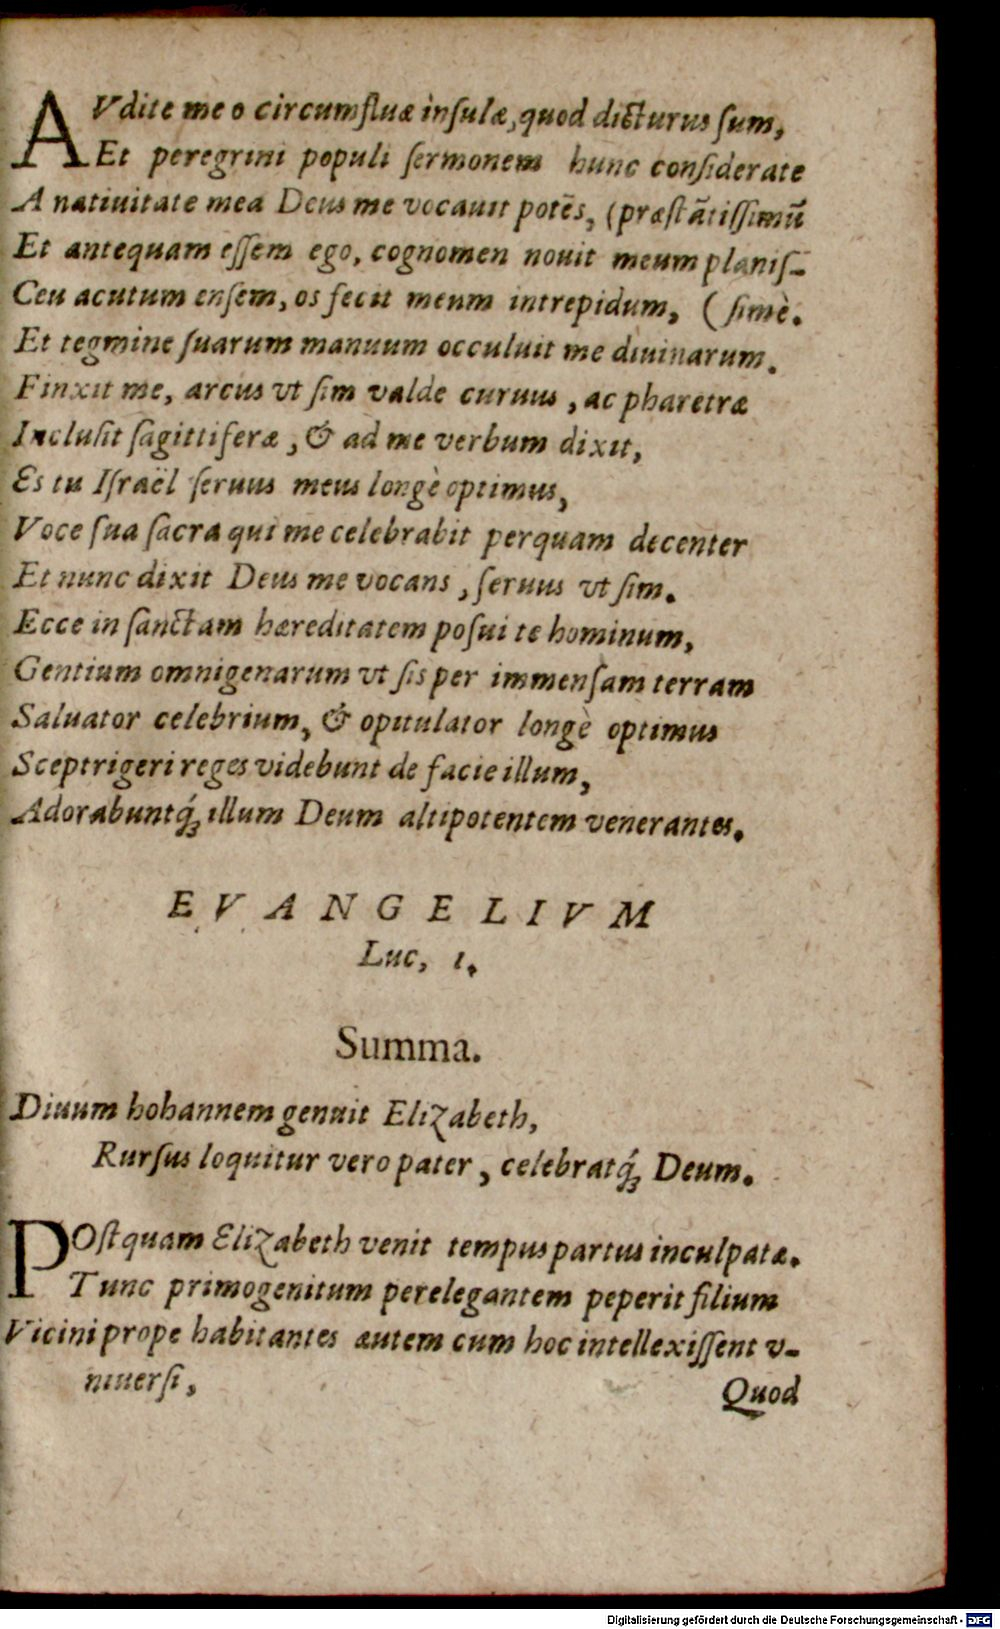 AVdite me o circumfluæ insulæ, quod dicturus sum,
Et peregrini populi sermonem hunc considerate
A natiuitate mea Deus me vocauit potẽs, (præstãtissimũ
Et antequam essem ego, cognomen nouit meum planis-
Ceu acutum ensem, os fecit meum intrepidum, ( simè.
Et tegmine suarum manuum occuluit me diuinarum.
Finxit me, arcus vt sim valde curuus, ac pharetræ
Inclusit sagittiferæ, & ad me verbum dixit,
Es tu Israël seruus meus longè optimus,
Voce sua sacra qui me celebrabit perquam decenter
Et nunc dixit Deus me vocans, seruus vt sim.
Ecce in sanctam hæreditatem posui te hominum,
Gentium omnigenarum vt sis per immensam terram
Saluator celebrium, & opitulator longè optimus
Sceptrigeri reges videbunt de facie illum,
Adorabuntq́ꝫ illum Deum altipotentem venerantes.
EVANGELIVM
Luc, 1.
Summa.
Diuum hohannem genuit Elizabeth,
Rursus loquitur vero pater, celebratq́ꝫ Deum.
POstquam Elizabeth venit tempus partus inculpatæ.
Tunc primogenitum perelegantem peperit filium
Vicini prope habitantes autem cum hoc intellexissent v-
niuersi,
Quod
Digitalisierung gefördert durch die Deutsche Forschungsgemeinschaft - DFG